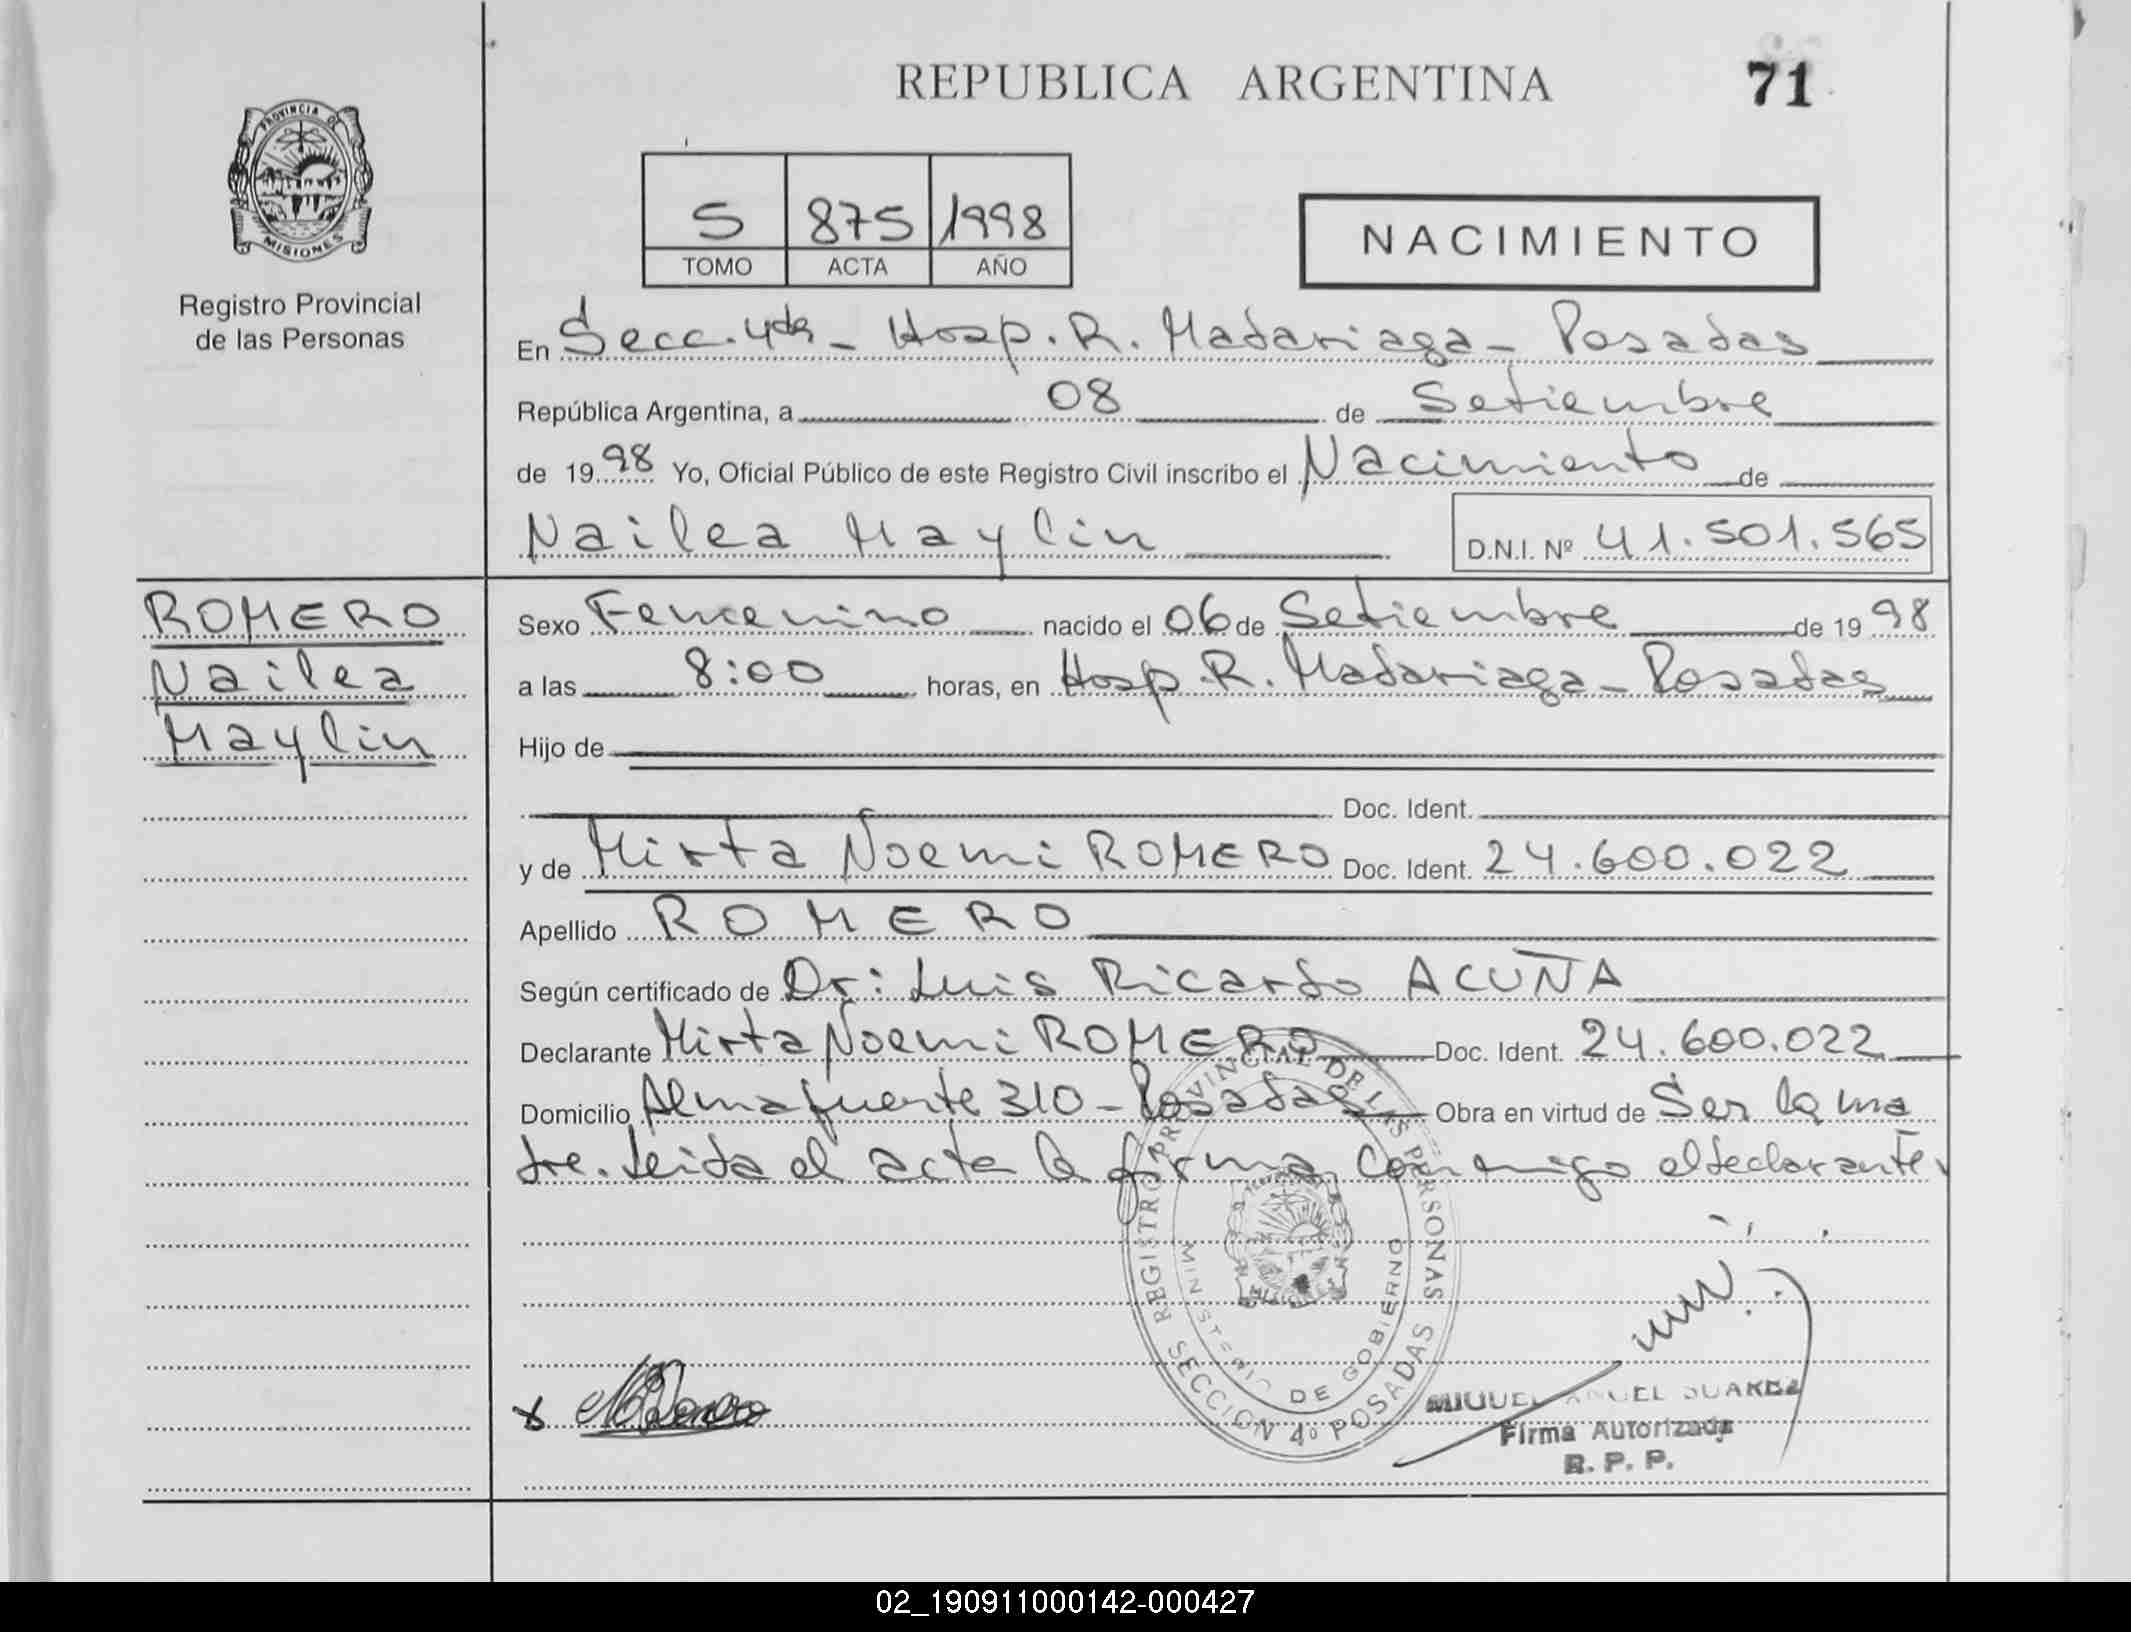 REPUBLICA ARGENTINA
71
PROVINCIA DE
MISIONES
Registro Provincial
de las Personas
5 875 1998
TOMO ACTA AÑO
NACIMIENTO
En Secc. 4ta - Hosp. R. Madariaga - Posadas
República Argentina, a 08 de Setiembre
de 1998 Yo, Oficial Público de este Registro Civil inscribo el Nacimiento de
Nailea Maylin D.N.I. Nº 41.501.565
ROMERO
Nailea
Maylin
Sexo Femenino nacido el 06 de Setiembre de 1998
a las 8:00 horas, en Hosp. R. Madariaga - Posadas
Hijo de
Doc. Ident.
y de Mirta Noemi ROMERO Doc. Ident. 24.600.022
Apellido ROMERO
Según certificado de Dr: Luis Ricardo ACUÑA
Declarante Mirta Noemi ROMERO Doc. Ident. 24.600.022
Domicilio Almafuerte 310 - Posadas Obra en virtud de Ser la ma
dre. Leida el acta la firma conmigo el declarante
REGISTRO PROVINCIAL DE LAS PERSONAS
MINISTERIO DE GOBIERNO
SECCION 4º POSADAS
MIGUEL ANGEL SUAREZ
Firma Autorizada
R. P. P.
02_190911000142-000427